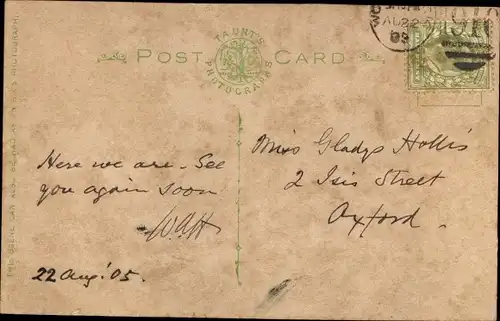 POST CARD
TAUNT'S
PHOTOGRAPHS
AU 22
916
Here we are. See
you again soon
WAH
22 Aug. '05.
Miss Gladys Hollis
2 Isis Street
Oxford.